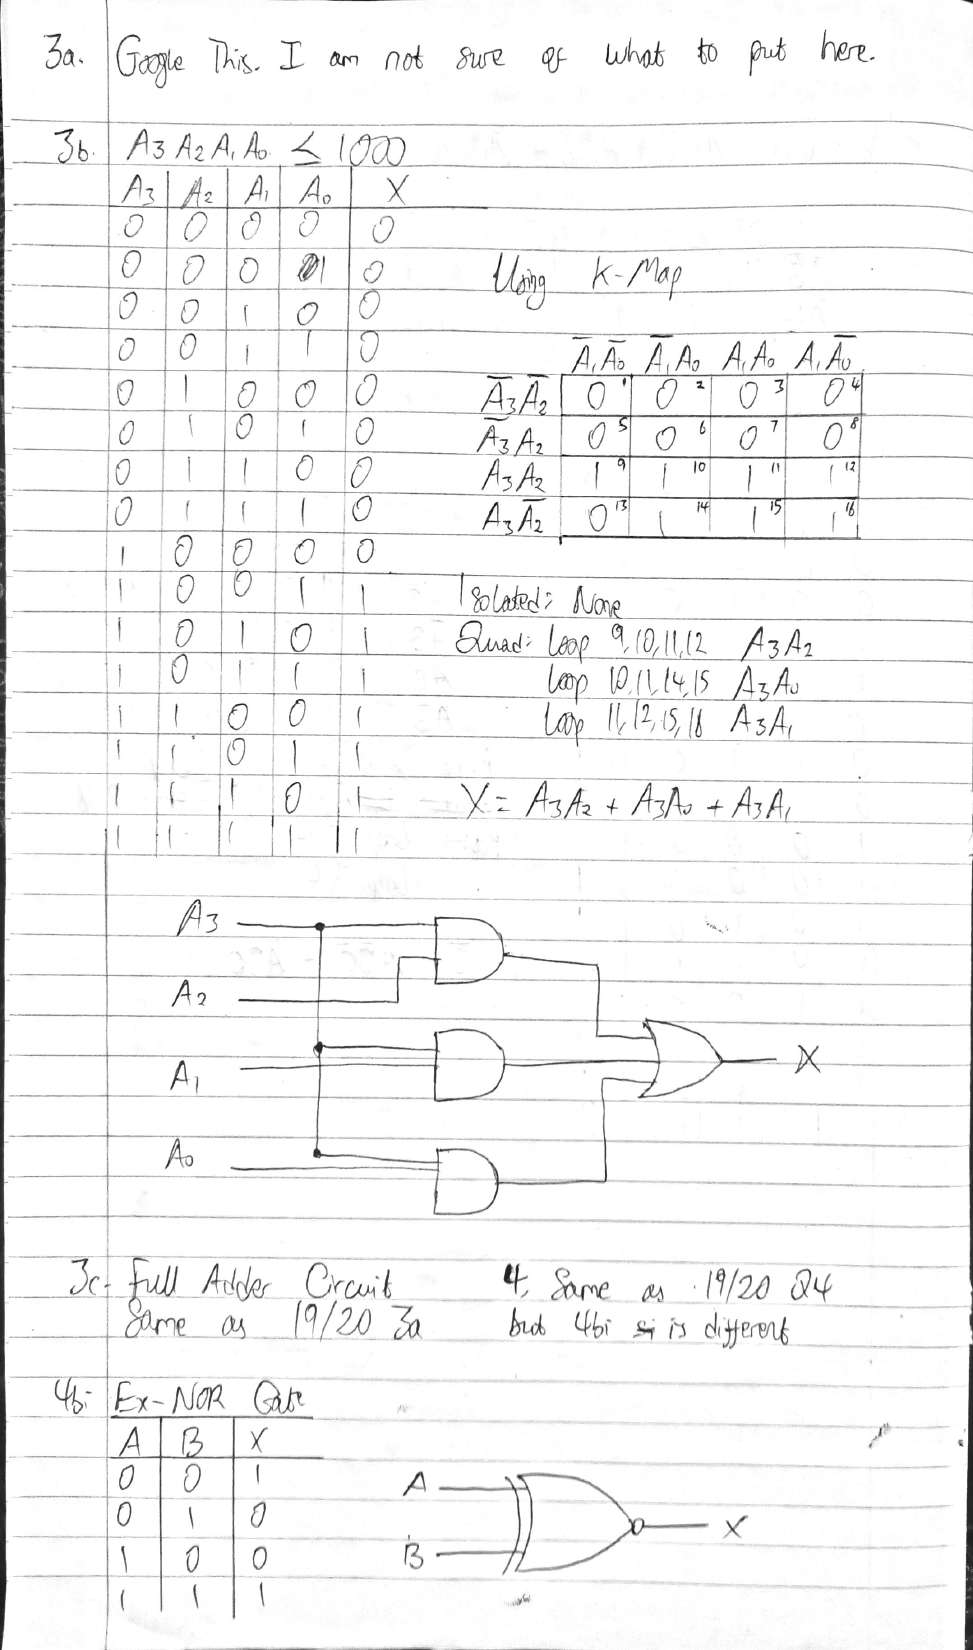 3a. Google This. I am not sure of what to put here.
3b. A3 A2 A1 A0 ≤ 1000
A3 A2 A1 A0 X
0 0 0 0 0
0 0 0 1 0
0 0 1 0 0
0 0 1 1 0
0 1 0 0 0
0 1 0 1 0
0 1 1 0 0
0 1 1 1 0
1 0 0 0 0
1 0 0 1 1
1 0 1 0 1
1 0 1 1 1
1 1 0 0 1
1 1 0 1 1
1 1 1 0 1
1 1 1 1 1
Using K-Map
A̅1A̅0 A̅1A0 A1A0 A1A̅0
A̅3A̅2 0 1 0 2 0 3 0 4
A̅3A2 0 5 0 6 0 7 0 8
A3A2 1 9 1 10 1 11 1 12
A3A̅2 0 13 1 14 1 15 1 16
Isolated: None
Quad: Loop 9,10,11,12 A3A2
Loop 10,11,14,15 A3A0
Loop 11,12,15,16 A3A1
X = A3A2 + A3A0 + A3A1
A3
A2
A1
A0
X
3c- Full Adder Circuit
Same as 19/20 3a
4. Same as 19/20 Q4
but 4bi is different
4bi- Ex-NOR Gate
A B X
0 0 1
0 1 0
1 0 0
1 1 1
A
B
X